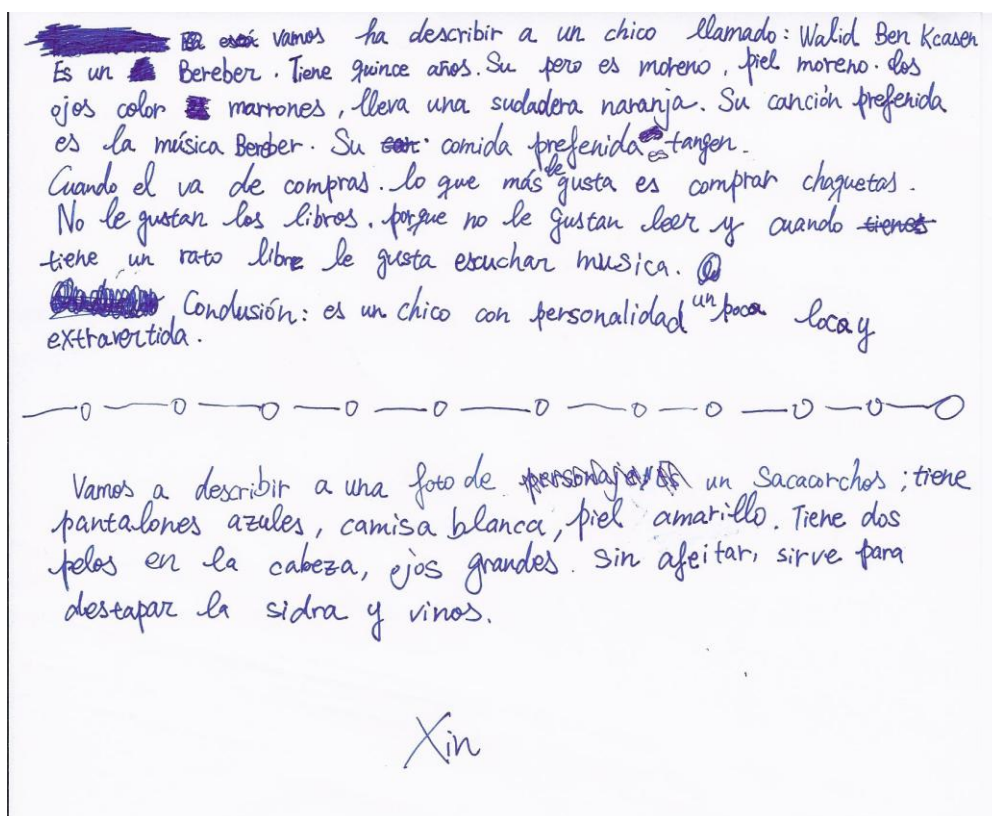 vamos ha describir a un chico llamado: Walid Ben Kcasen
Es un Bereber. Tiene quince años. Su pero es moreno, piel moreno. los
ojos color marrones, lleva una sudadera naranja. Su canción preferida
es la música Bereber. Su comida preferida es tangen.
Cuando el va de compras. lo que más le gusta es comprar chaquetas.
No le gustan los libros. porque no le gustan leer y cuando tienes
tiene un rato libre le gusta escuchar musica.
Conclusión: es un chico con personalidad un poca loca y
extravertida.
Vamos a describir a una foto de un Sacacorchos; tiene
pantalones azules, camisa blanca, piel amarillo. Tiene dos
pelos en la cabeza, ojos grandes. Sin afeitar, sirve para
destapar la sidra y vinos.
Xin